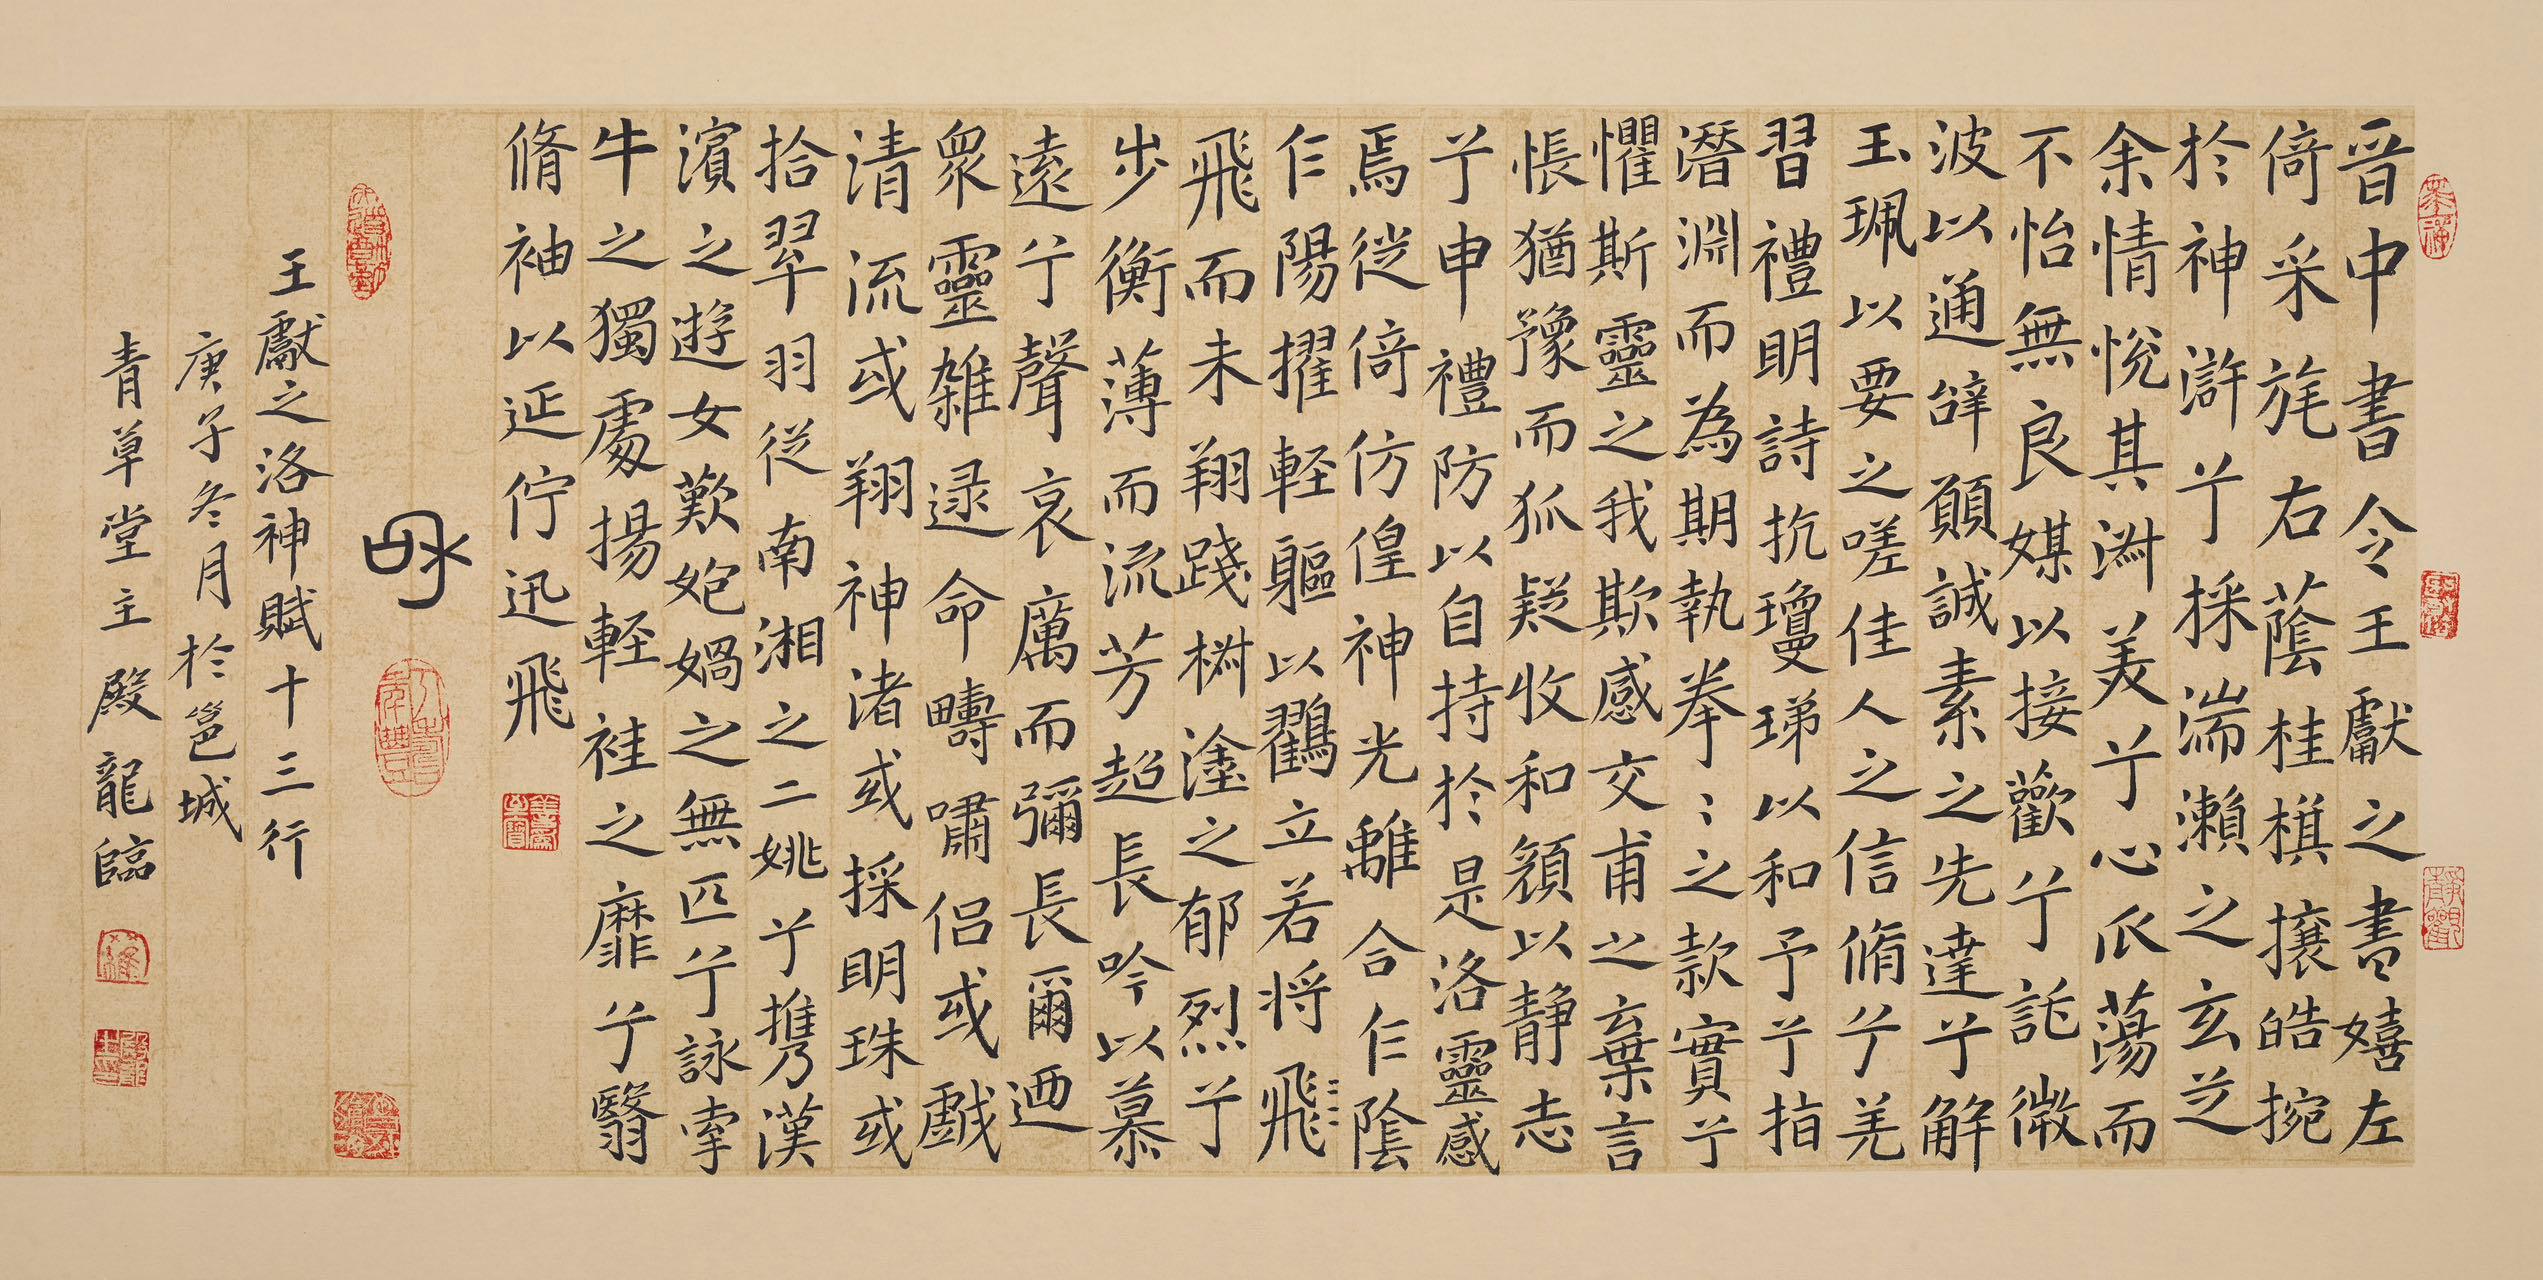 晉中書令王獻之書嬉左
倚采旄右蔭桂棋攘皓捥
於神滸兮採湍瀨之玄芝
余情悅其淋美兮心爪蕩而
不怡無良媒以接歡兮託微
波以通辞願誠素之先達兮解
玉珮以要之嗟佳人之信脩兮羌
習禮明詩抗瓊珶以和予兮指
潛淵而為期執拳〻之款實兮
懼斯靈之我欺感交甫之棄言
悵猶豫而狐疑收和顏以靜志
兮申禮防以自持於是洛靈感
焉從倚仿偟神光離合仁陰
仁陽擢輕軀以鸛立若将飛
飛而未翔踐樹塗之郁烈兮
步衡薄而流芳超長吟以慕
遠兮聲哀厲而彌長爾迺
眾靈雜逯命疇嘯侶或戲
清流或翔神渚或採明珠或
拾翠羽從南湘之二姚兮攜漢
濱之遊女歎匏媧之無匹兮詠牽
牛之獨處揚輕袿之靡兮翳
脩袖以延佇迅飛
王獻之洛神賦十三行
庚子冬月於邕城
青草堂主殿龍臨